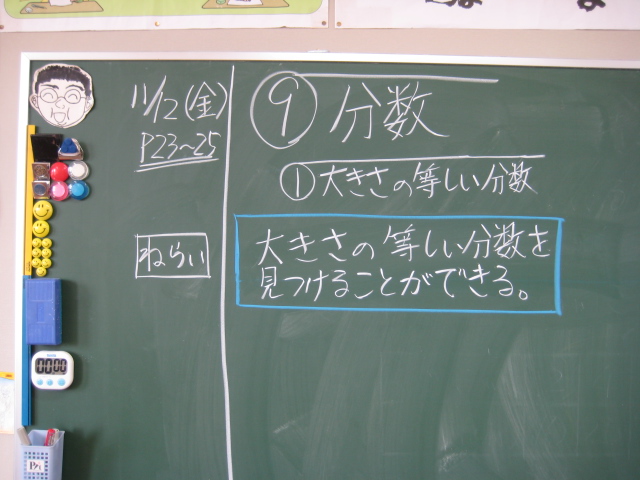 11/12(金)
P23~25
⑨ 分数
① 大きさの等しい分数
ねらい
大きさの等しい分数を
見つけることができる。
00:00